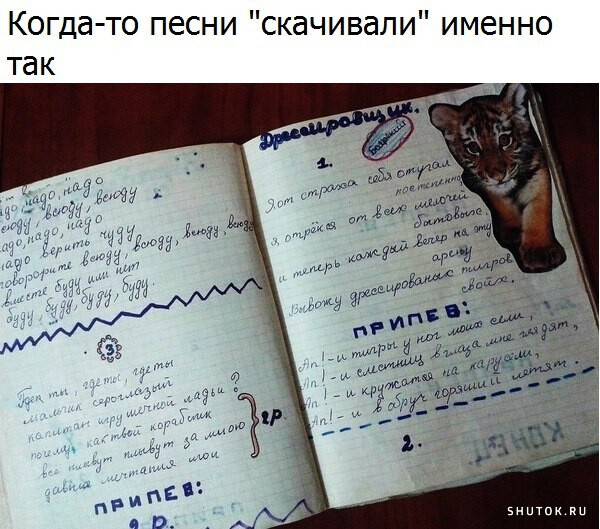 Когда-то песни "скачивали" именно
так
надо, надо
всюду, всюду, всюду
надо, надо, надо
верить чуду
всюду, всюду, всюду, всюду
вместе буду или нет
буду, буду, буду, буду.
3
Где ты, где ты, где ты
мальчик сероглазый
капитан игрушечной ладьи?
почему, как твой кораблик
всё плывут плывут за мною
давние мечтания мои
2р.
ПРИПЕВ:
2 р.
Дрессировщик.
Боярский
1.
Я от страха себя отучал
постепенно
я, отрёкся от всех мелочей
бытовых.
и теперь каждый вечер на эту
арену
Вывожу дрессированых тигров
своих.
ПРИПЕВ:
Ап! - и тигры у ног моих сели,
Ап! - и с лестниц в глаза мне глядят,
Ап! - и кружатся на карусели,
Ап! - и в обруч горящий летят.
2.
SHUTOK.RU